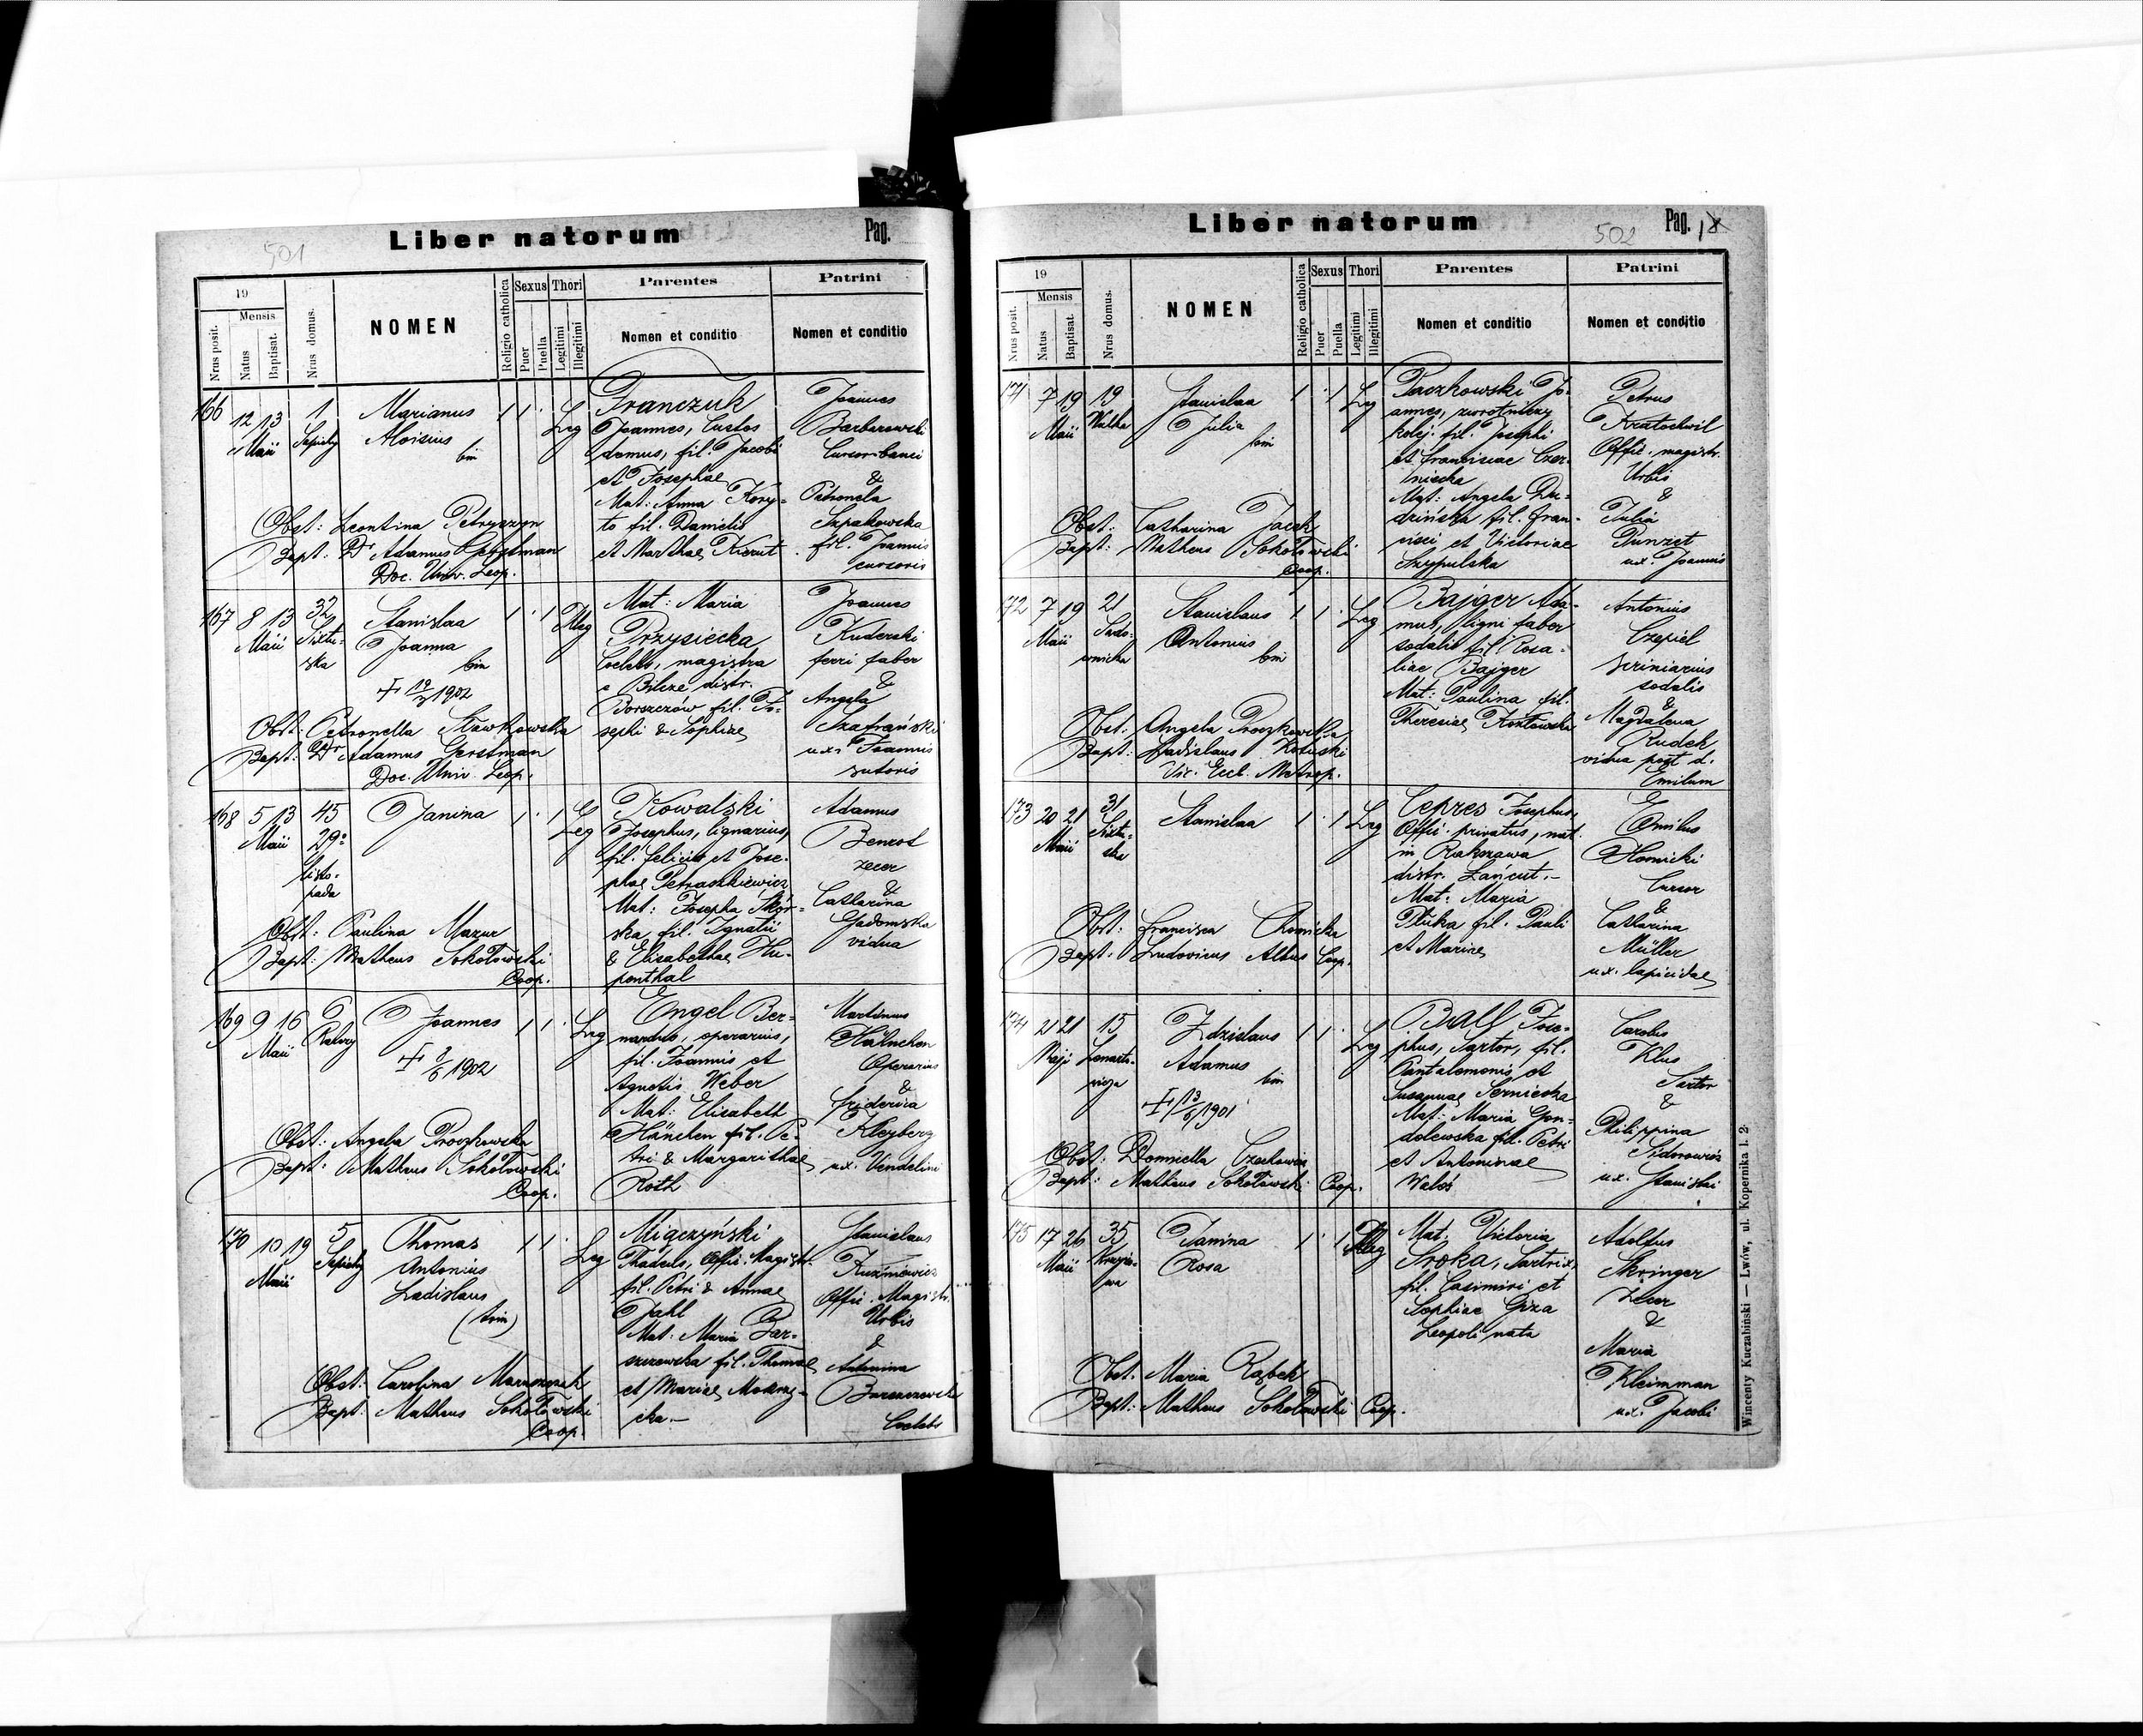 501
Liber natorum
Pag.
19
Mensis
Nrus posit.
Natus
Baptisat.
Nrus domus.
NOMEN
Religio catholica
Sexus
Puer
Puella
Thori
Legitimi
Illegitimi
Parentes
Nomen et conditio
Patrini
Nomen et conditio
166
12 13
Maii
1
Marianus
Aloisius
bin
1 1
Leg
Franczuk
Joannes, Custos
domus, fil. Jacobi
et Josephae
Mat: Anna Kory-
to fil. Danielis
et Marthae
Joannes
Barbarowski
&
Petronela
Szpakowska
fil. Joannis
cursoris
Obst: Leontina Petryszyn
Bapt: Dr Adamus Gerstman
Doc. Univ. Leop.
167
8 13
Maii
32
Sixtu-
ska
Stanislaa
Joanna
bin
1902
1 1
Illeg
Mat: Maria
Przysiecka
magistra
e Bilcze distr.
Borszczów fil. Jo-
sephi & Sophiae
Joannes
Kuderski
ferri faber
&
Angela
Szafrański
ux: Joannis
sutoris
Obst: Petronella Sławkowska
Bapt: Dr Adamus Gerstman
Doc. Univ. Leop.
168
5 13
Maii
45
29
Listo-
pada
Janina
1 1
Leg
Kowalski
Josephus, lignarius,
fil. Felicis et Jose-
phae Petraszkiewicz
Mat: Josepha Skór-
ska fil. Ignatii
& Elisabethae Hu-
penthal
Adamus
zecer
&
Catharina
Gadomska
vidua
Obst: Paulina Mazur
Bapt: Matheus Sokołowski
Coop.
169
9 16
Maii
6
Joannes
1902
1 1
Leg
Engel Ber-
nardus, operarius,
fil. Joannis et
Agnetis Weber
Mat: Elisabeth
Hänchen fil. Pe-
tri & Margarithae
Roth
Martinus
Operarius
&
Friderica
Kleyberg
ux. Vendelini
Obst: Angela Proszkowska
Bapt: Matheus Sokołowski
Coop.
170
10 19
Maii
5
Thomas
Antonius
Ladislaus
(trin)
1 1
Leg
Migczyński
Thadeus, Offic. Magistr.
fil. Petri & Annae
Jahl
Mat. Maria Bar-
szczewska fil. Thomae
et Mariae
Stanislaus
Kuźniewicz
Offic. Magistr.
Urbis
&
Antonina
Barszczewska
Coelebs
Obst: Carolina
Bapt: Matheus Sokołowski
Coop.
Liber natorum
502
Pag. 18
19
Mensis
Nrus posit.
Natus
Baptisat.
Nrus domus.
NOMEN
Religio catholica
Sexus
Puer
Puella
Thori
Legitimi
Illegitimi
Parentes
Nomen et conditio
Patrini
Nomen et conditio
171
7 19
Maii
19
Stanislaa
Julia
bin
1 1
Leg
Paczkowski Jo-
annes, zwrotniczy
kolej. fil. Josephi
et Franciscae Czer-
niecka
Mat: Angela Du-
drińska fil. Fran-
cisci et Victoriae
Szypulska
Petrus
Kratochwil
Offic. magistr.
Urbis
&
Julia
Punzet
ux. Joannis
Obst: Catharina Jacek
Bapt: Matheus Sokołowski
Coop.
172
7 19
Maii
21
Sado-
wnicka
Stanislaus
Antonius
bin
1 1
Leg
Bajger Ada-
mus, ligni faber
sodalis fil Rosa-
liae Bajger
Mat: Paulina fil.
Theresiae Kozłowska
Antonius
Czepiel
scriniarius
sodalis
&
Magdalena
Rudek
vidua post d.
Emilum
Obst: Angela Proszkowska
Bapt: Ladislaus
Vic. Eccl. Metrop.
173
20 21
Maii
31
Sixtu-
ska
Stanislaa
1 1
Leg
Cepres Josephus,
Offic. privatus, nat.
in Rakszawa
distr. Łańcut.-
Mat: Maria
Pluka fil. Pauli
et Mariae
Emilus
Homicki
Cursor
&
Catharina
Müller
ux. lapicidae
Obst: Francisca Chomicka
Bapt: Ludovicus Albus Coop.
174
21 21
Maji
15
Lenarto-
wicza
Zdzislaus
Adamus
bin
1901
1 1
Leg
Ball Jose-
phus, Sartor, fil.
Pantalemonis et
Susannae Serniecka
Mat: Maria Gon-
dolewska fil. Petri
et Antoninae
Waloś
Carolus
Klus
Sartor
&
Philippina
Sidorowicz
ux. Stanislai
Obst: Domicella Czechowicz
Bapt: Matheus Sokołowski Coop.
175
17 26
Maii
35
Janina
Rosa
1 1
Illeg
Mat. Victoria
Sroka, Sartrix,
fil. Casimiri et
Sophiae Giza
Leopoli nata
Adolfus
Skringer
Zecer
&
Maria
Kleinman
ux: Jacobi
Obst. Maria Rąbek
Bapt: Matheus Sokołowski Coop.
Wincenty Kuczabiński — Lwów, ul. Kopernika l. 2